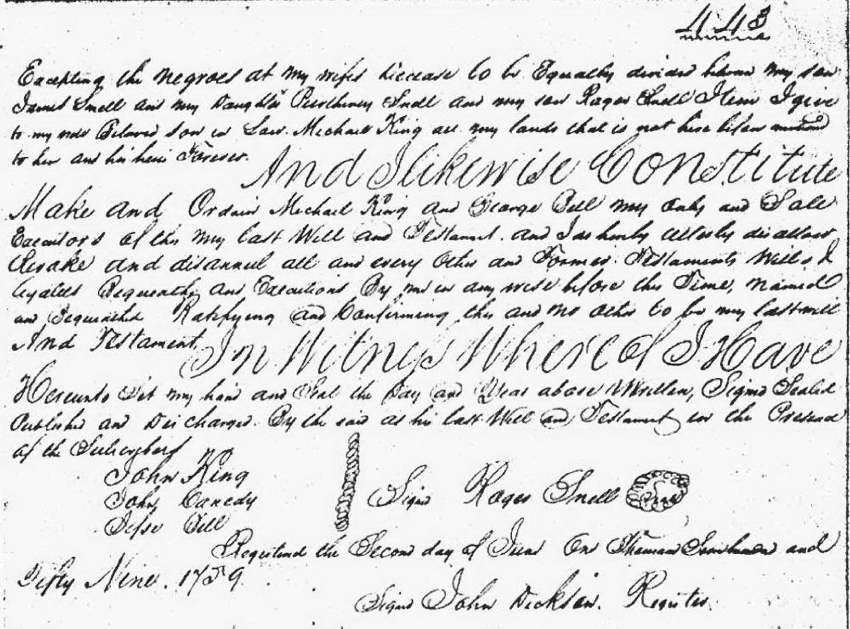 443
Excepting the negroes at my wifes Decease to be Equally divided betwene my son
James Snell and my Daughter Snell and my son Roger Snell Item I give
to my Beloved son in Law Michael King all my lands that is not here before
to him and his heirs Forever.
And I likewise Constitute
Make and Ordain Michael King and George Bell my only and Sole
Executors of this my last Will and Testament. and I do hereby utterly disallow
Revoke and disannul all and every Other and Former Testaments Wills &
and Executions By me in any wise before this Time, Named
and Ratifying and Confirming this and no other to be my last will
And Testament,
In Witness Whereof I Have
Hereunto Set my hand and Seal the Day and Year above Written, Signd Sealed
Publishd and Discharged By the said as his last Will and Testament in the Presence
of the Subscribers
John King
John Canedy
Jesse Bell
Signd Roger Snell Seal
Registered the Second day of June One and
Fifty Nine. 1759
Signd John Dickson. Register.